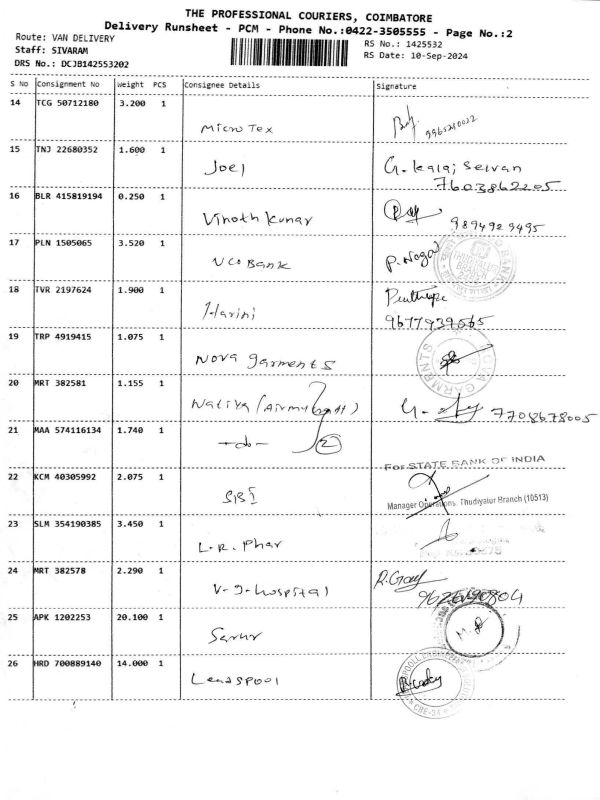 THE PROFESSIONAL COURIERS, COIMBATORE
Delivery Runsheet - PCM - Phone No.:0422-3505555 - Page No.:2
Route: VAN DELIVERY
RS No.: 1425532
Staff: SIVARAM
RS Date: 10-Sep-2024
DRS No.: DCJB142553202
S No Consignment No Weight PCS Consignee Details Signature
14 TCG 50712180 3.200 1
Micro Tex
15 TNJ 22680352 1.600 1
Joel G. kalai Selvan
7603862205
16 BLR 415819194 0.250 1
Vinoth kumar 9894929495
17 PLN 1505065 3.520 1
UCO Bank P. Nagal
18 TVR 2197624 1.900 1
Harini
9677939565
19 TRP 4919415 1.075 1
Nova garments
NOVA GARMENTS
20 MRT 382581 1.155 1
7708678005
21 MAA 574116134 1.740 1
-do- 2
For STATE BANK OF INDIA
22 KCM 40305992 2.075 1
SBI
Manager Operations, Thudiyalur Branch (10513)
23 SLM 354190385 3.450 1
L.R. Phar
24 MRT 382578 2.290 1
V.G. hospital
25 APK 1202253 20.100 1
26 HRD 700889140 14.000 1
Lenaspool